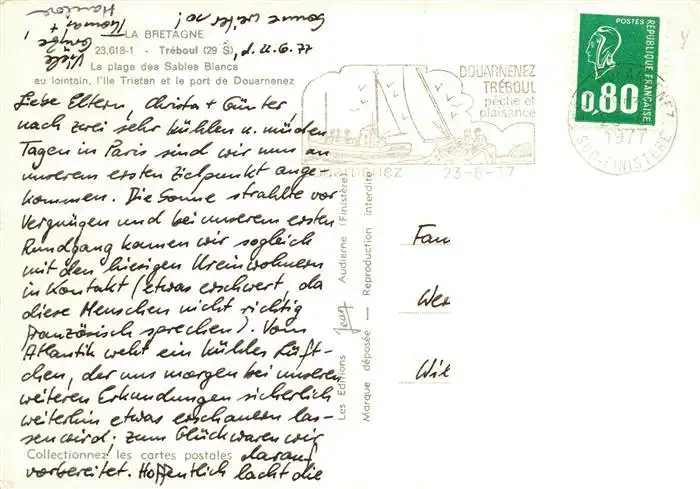 LA BRETAGNE
23.618-1 - Tréboul (29 S), d. 22.6.77
La plage des Sables Blancs
au lointain, l'Ile Tristan et le port de Douarnenez
Liebe Eltern, Christa + Günter
nach zwei sehr kühlen u. müden
Tagen in Paris sind wir nun an
unserem ersten Zielpunkt ange-
kommen. Die Sonne strahlte vor
Vergnügen und bei unserem ersten
Rundgang kamen wir sogleich
mit den hiesigen Ureinwohnern
in Kontakt (etwas erschwert, da
diese Menschen nicht richtig
französisch sprechen). Vom
Atlantik weht ein kühles Lüft-
chen, der uns morgen bei unseren
weiteren Erkundungen sicherlich
weiterhin etwas erschauern las-
sen wird; zum Glück waren wir
darauf
vorbereitet. Hoffentlich lacht die
Sonne weiter so!
Viele
Grüße
Thomas +
Collectionnez les cartes postales
Les Editions Jean Audierne (Finistère)
Marque déposée — Reproduction interdite
DOUARNENEZ
TRÉBOUL
pêche et
plaisance
23-6-77
POSTES
RÉPUBLIQUE FRANÇAISE
0,80
1977
SUD-FINISTERE
Fam
Wer
Wil